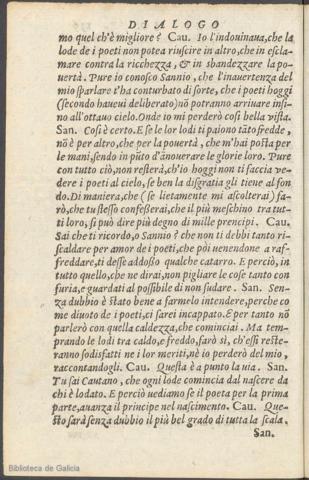 DIALOGO
mo quel ch'è migliore? Cau. Io l'indouinaua, che la
lode de i poeti non potea riuscire in altro, che in escla-
mare contra la ricchezza, & in sbandezzare la po-
uertà. Pure io conosco Sannio, che l'inauertenza del
mio sparlare t'ha conturbato di sorte, che i poeti hoggi
(secondo haueui deliberato) nõ potranno arriuare insi-
no all'ottauo cielo. Onde io mi perderò cosi bella uista.
San. Cosi è certo. E se le lor lodi ti paiono tãto fredde,
nõ è per altro, che per la pouertà, che m'hai posta per
le mani, sendo in pũto d'ãnouerare le glorie loro. Pure
con tutto ciò, non resterà, ch'io hoggi non ti faccia ve-
dere i poeti al cielo, se ben la disgratia gli tiene al fon
do. Di maniera, che (se lietamente mi ascolterai) fa-
rò, che tu stesso confesserai, che il più meschino tra tut-
ti loro, si può dire più degno di mille prencipi. Cau.
Sai che ti ricordo, o Sannio? che non ti debbi tanto ri-
scaldare per amor de i poeti, che pòi uenendone a raf-
freddare, ti desse addosso qualche catarro. E perciò, in
tutto quello, che ne dirai, non pigliare le cose tanto con
furia, e guardati al possibile di non sudare. San. Sen-
za dubbio è stato bene a farmelo intendere, perche co
me diuoto de i poeti, ci sarei incappato. E per tanto nõ
parlerò con quella caldezza, che cominciai. Ma tem-
prando le lodi tra caldo, e freddo, farò sì, ch'essi reste-
ranno sodisfatti ne i lor meriti, nè io perderò del mio,
raccontandogli. Cau. Questa è a punto la uia. San.
Tu sai Cautano, che ogni lode comincia dal nascere da
chi è lodato. E perciò uediamo se il poeta per la prima
parte, auanza il principe nel nascimento. Cau. Que-
sto sarà senza dubbio il più bel grado di tutta la scala.
San.
Biblioteca de Galicia